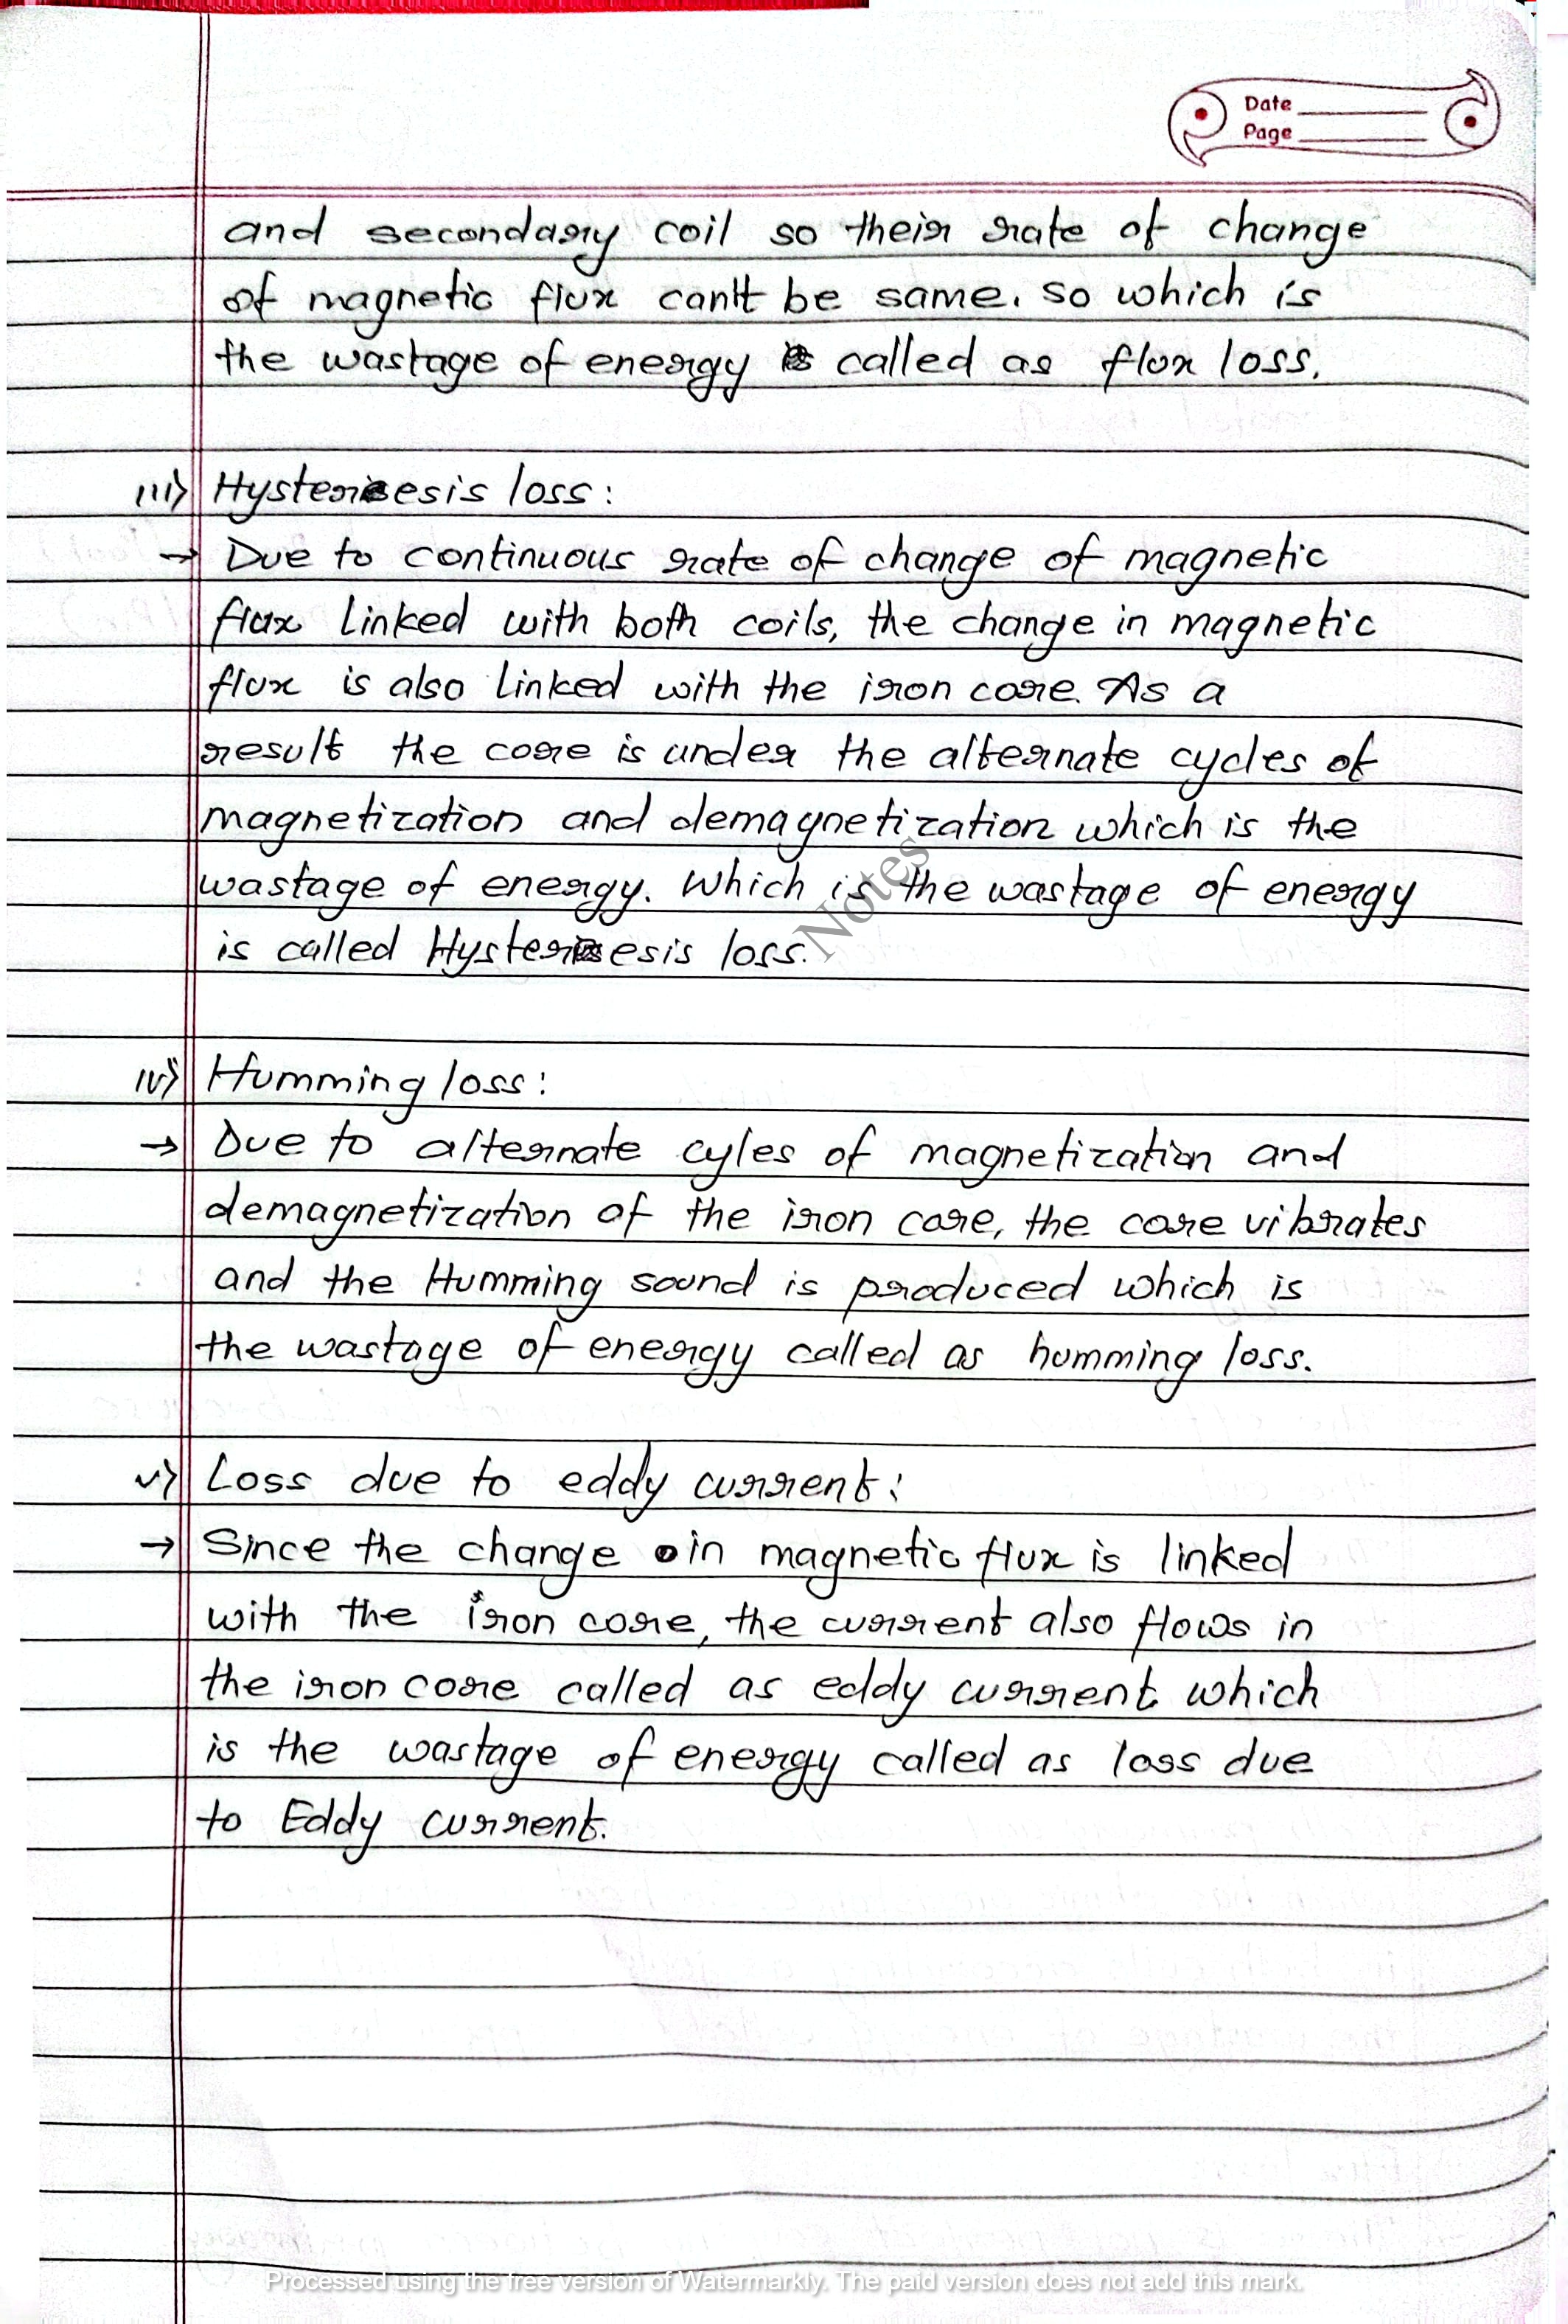 Date
Page
and secondary coil so their rate of change
of magnetic flux can't be same. So which is
the wastage of energy is called as flux loss.
iii) Hysteresis loss:
→ Due to continuous rate of change of magnetic
flux linked with both coils, the change in magnetic
flux is also linked with the iron core. As a
result the core is under the alternate cycles of
magnetization and demagnetization which is the
wastage of energy. Which is the wastage of energy
is called Hysteresis loss.
Notes
iv) Humming loss:
→ Due to alternate cyles of magnetization and
demagnetization of the iron core, the core vibrates
and the Humming sound is produced which is
the wastage of energy called as humming loss.
v) Loss due to eddy current:
→ Since the change in magnetic flux is linked
with the iron core, the current also flows in
the iron core called as eddy current which
is the wastage of energy called as loss due
to Eddy current.
Processed using the free version of Watermarkly. The paid version does not add this mark.